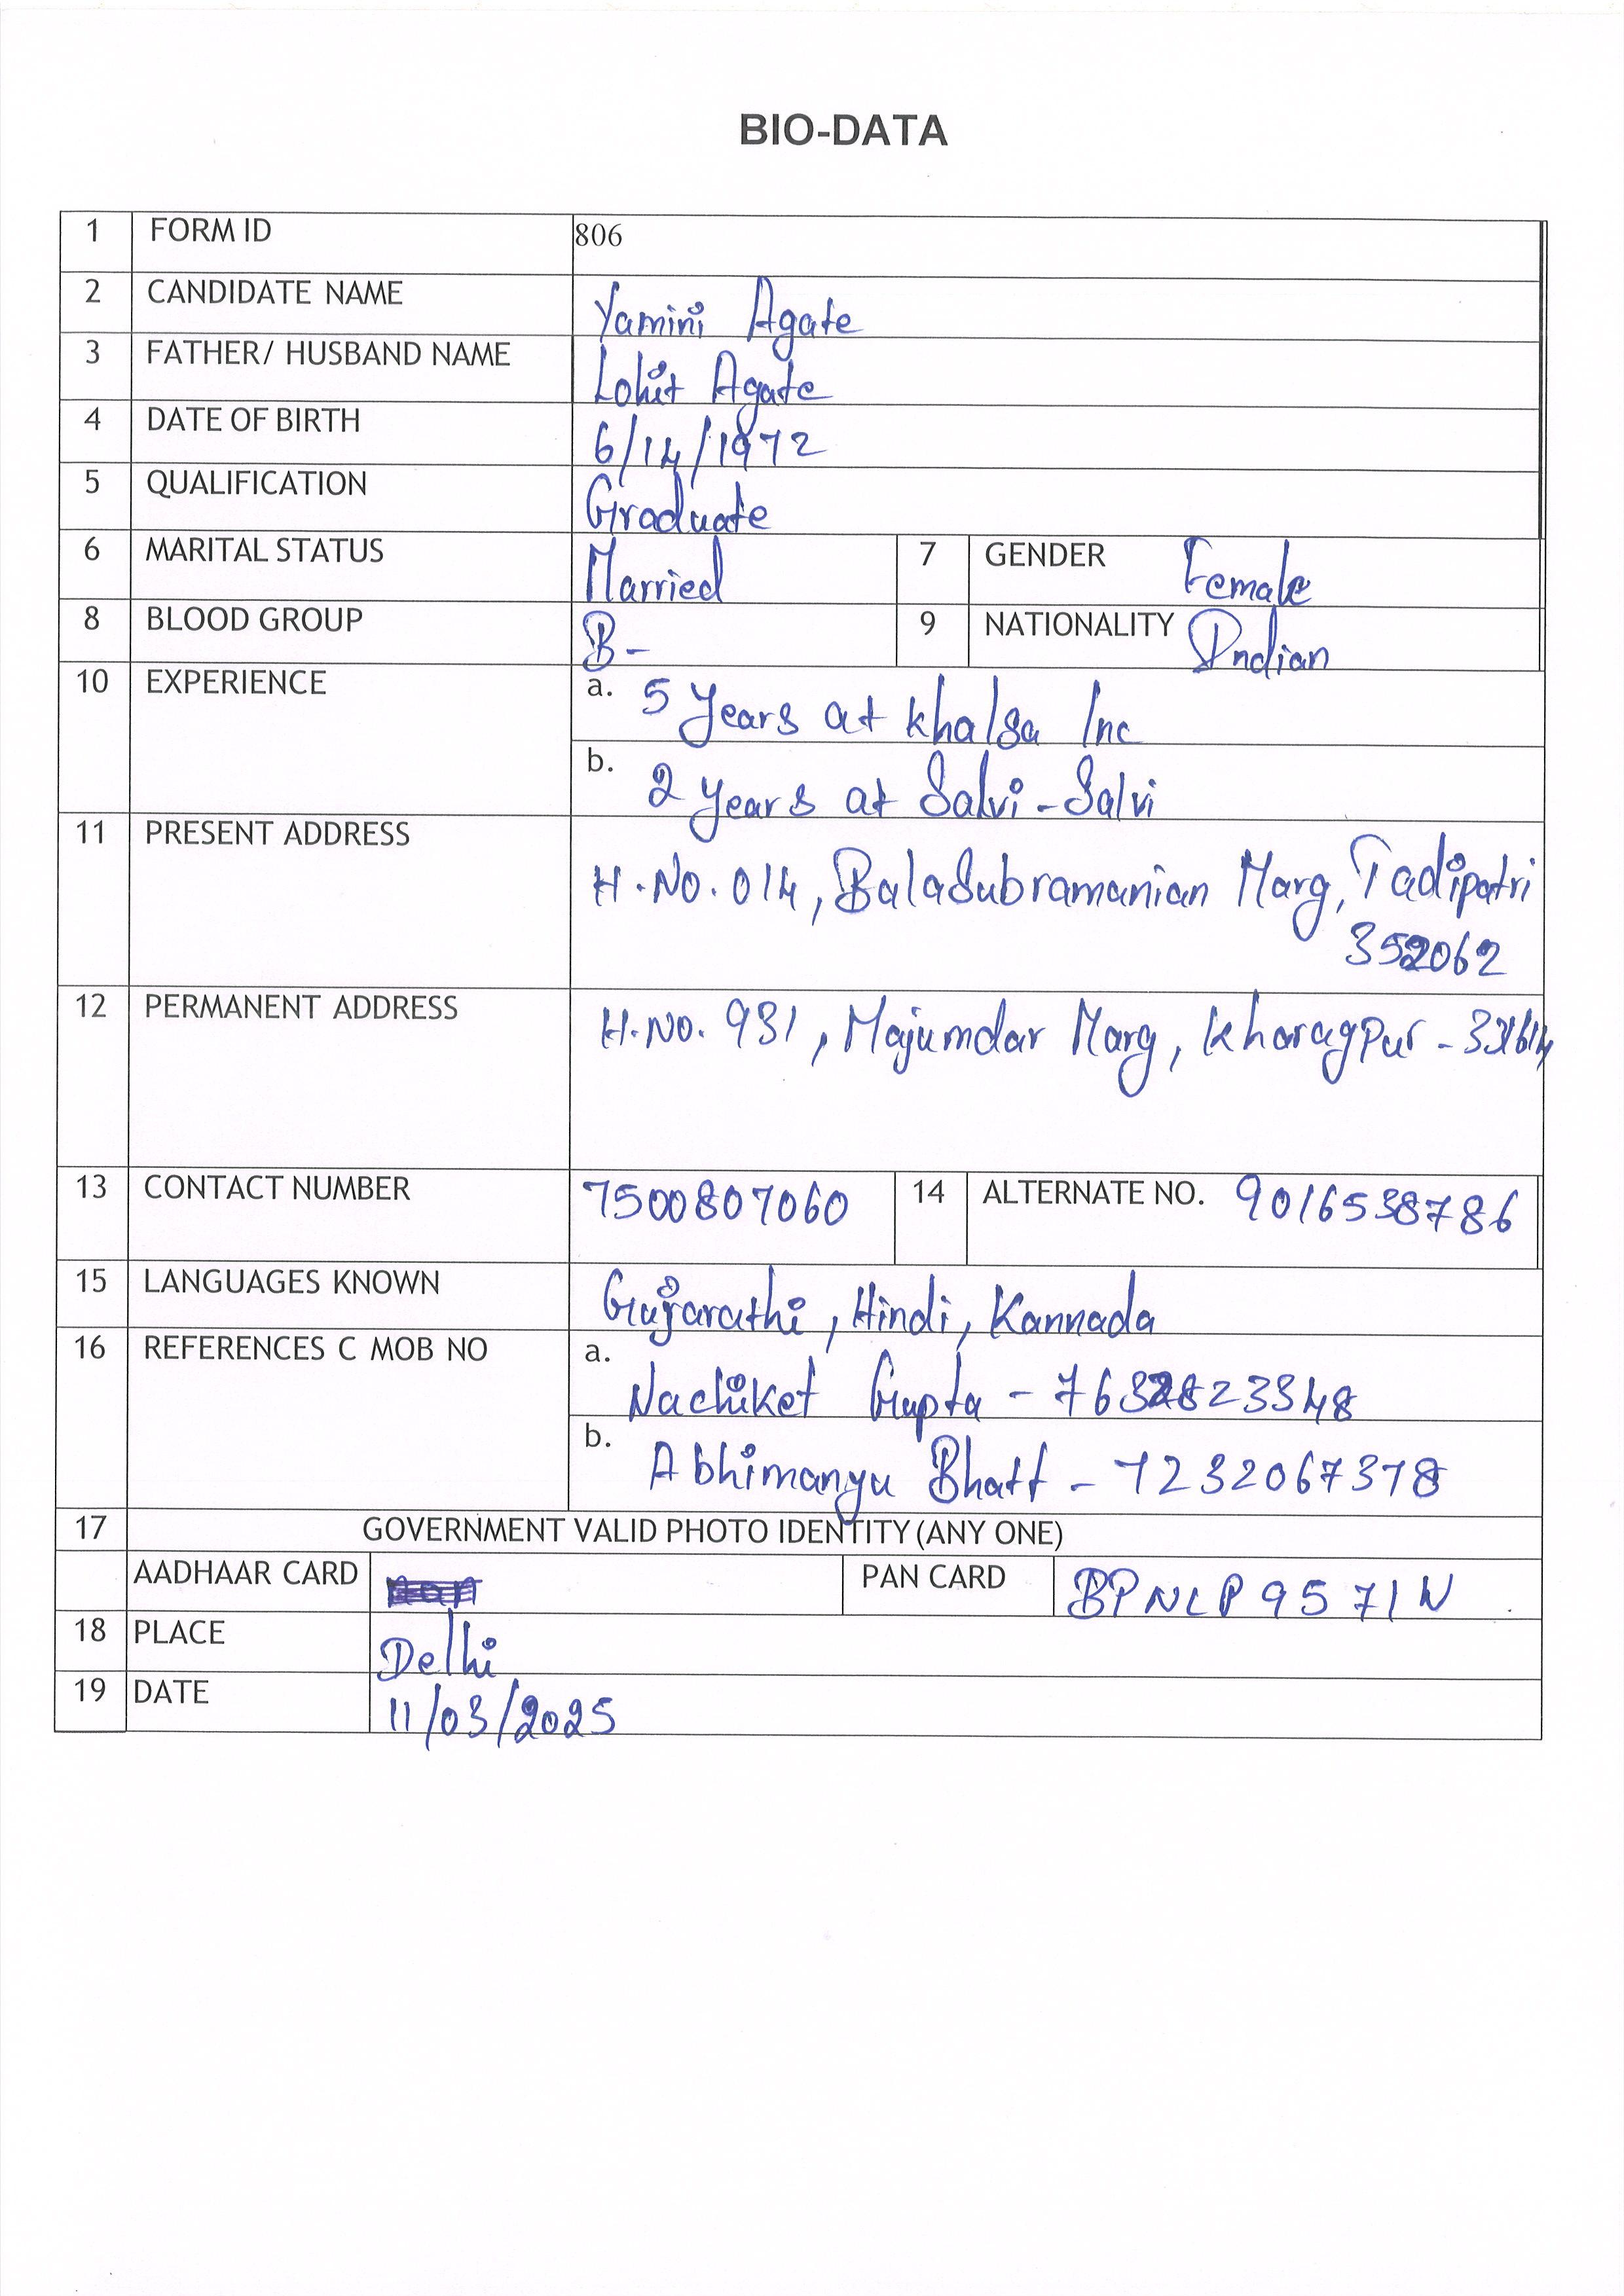 BIO-DATA
1 FORM ID 806
2 CANDIDATE NAME Yamini Agate
3 FATHER/ HUSBAND NAME Lohit Agate
4 DATE OF BIRTH 6/14/1972
5 QUALIFICATION Graduate
6 MARITAL STATUS Married 7 GENDER Female
8 BLOOD GROUP B- 9 NATIONALITY Indian
10 EXPERIENCE a. 5 Years at Khalsa Inc
b. 2 Years at Salvi-Salvi
11 PRESENT ADDRESS
H.No. 014, BalaSubramanian Marg, Tadipatri
352062
12 PERMANENT ADDRESS H.No. 931, Majumdar Marg, Kharagpur -
13 CONTACT NUMBER 7500807060 14 ALTERNATE NO. 9016538786
15 LANGUAGES KNOWN Gujarathi, Hindi, Kannada
16 REFERENCES C MOB NO a.
Nachiket Gupta - 7632823348
b.
Abhimanyu Bhatt - 7232067378
17 GOVERNMENT VALID PHOTO IDENTITY (ANY ONE)
AADHAAR CARD PAN CARD BPNLP9571N
18 PLACE Delhi
19 DATE 11/03/2025